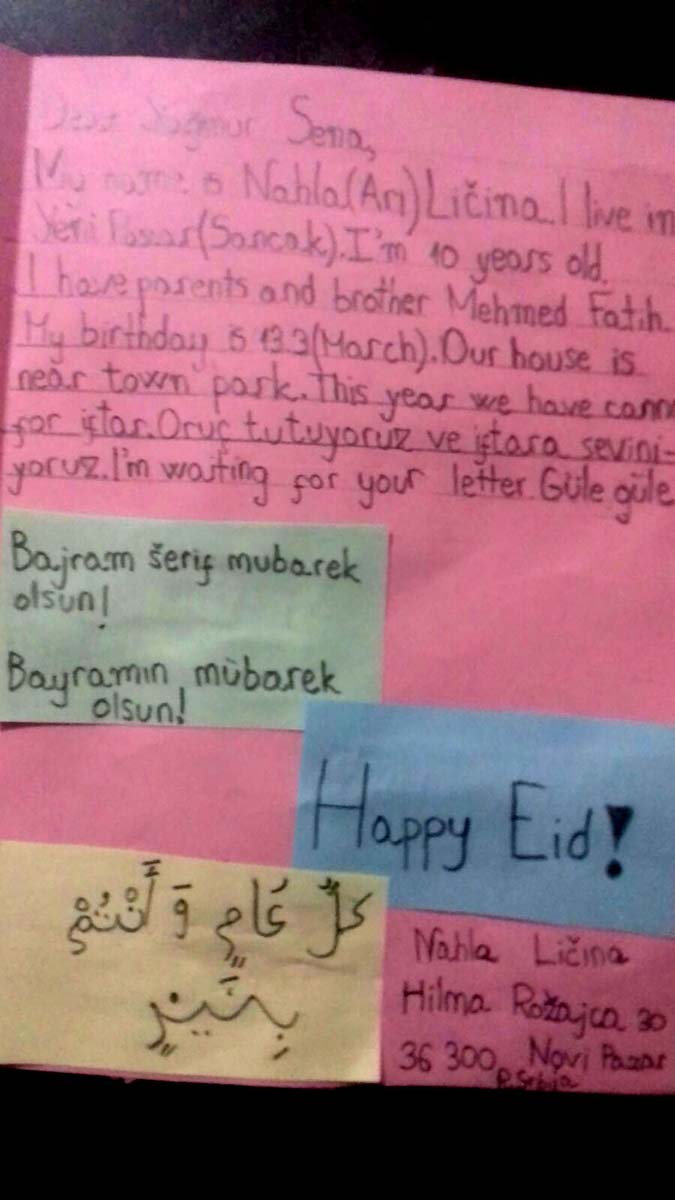 Dear Yağmur Sena,
My name is Nahla(Arı)Ličina.I live in
Yeni Pazar(Sancak).I'm 10 years old.
I have parents and brother Mehmed Fatih.
My birthday is 13.3(March).Our house is
near town park.This year we have
for iftar.Oruç tutuyoruz ve iftara sevini-
yoruz.I'm waiting for your letter.Güle güle
Bajram šerif mubarek
olsun!
Bayramın mübarek
olsun!
Happy Eid!
كلُّ عَامٍ وَ أَنْتُمْ
بِخَيْرٍ
Nahla Ličina
Hilma Rožajca 30
36 300 Novi Pazar
R.Srbija